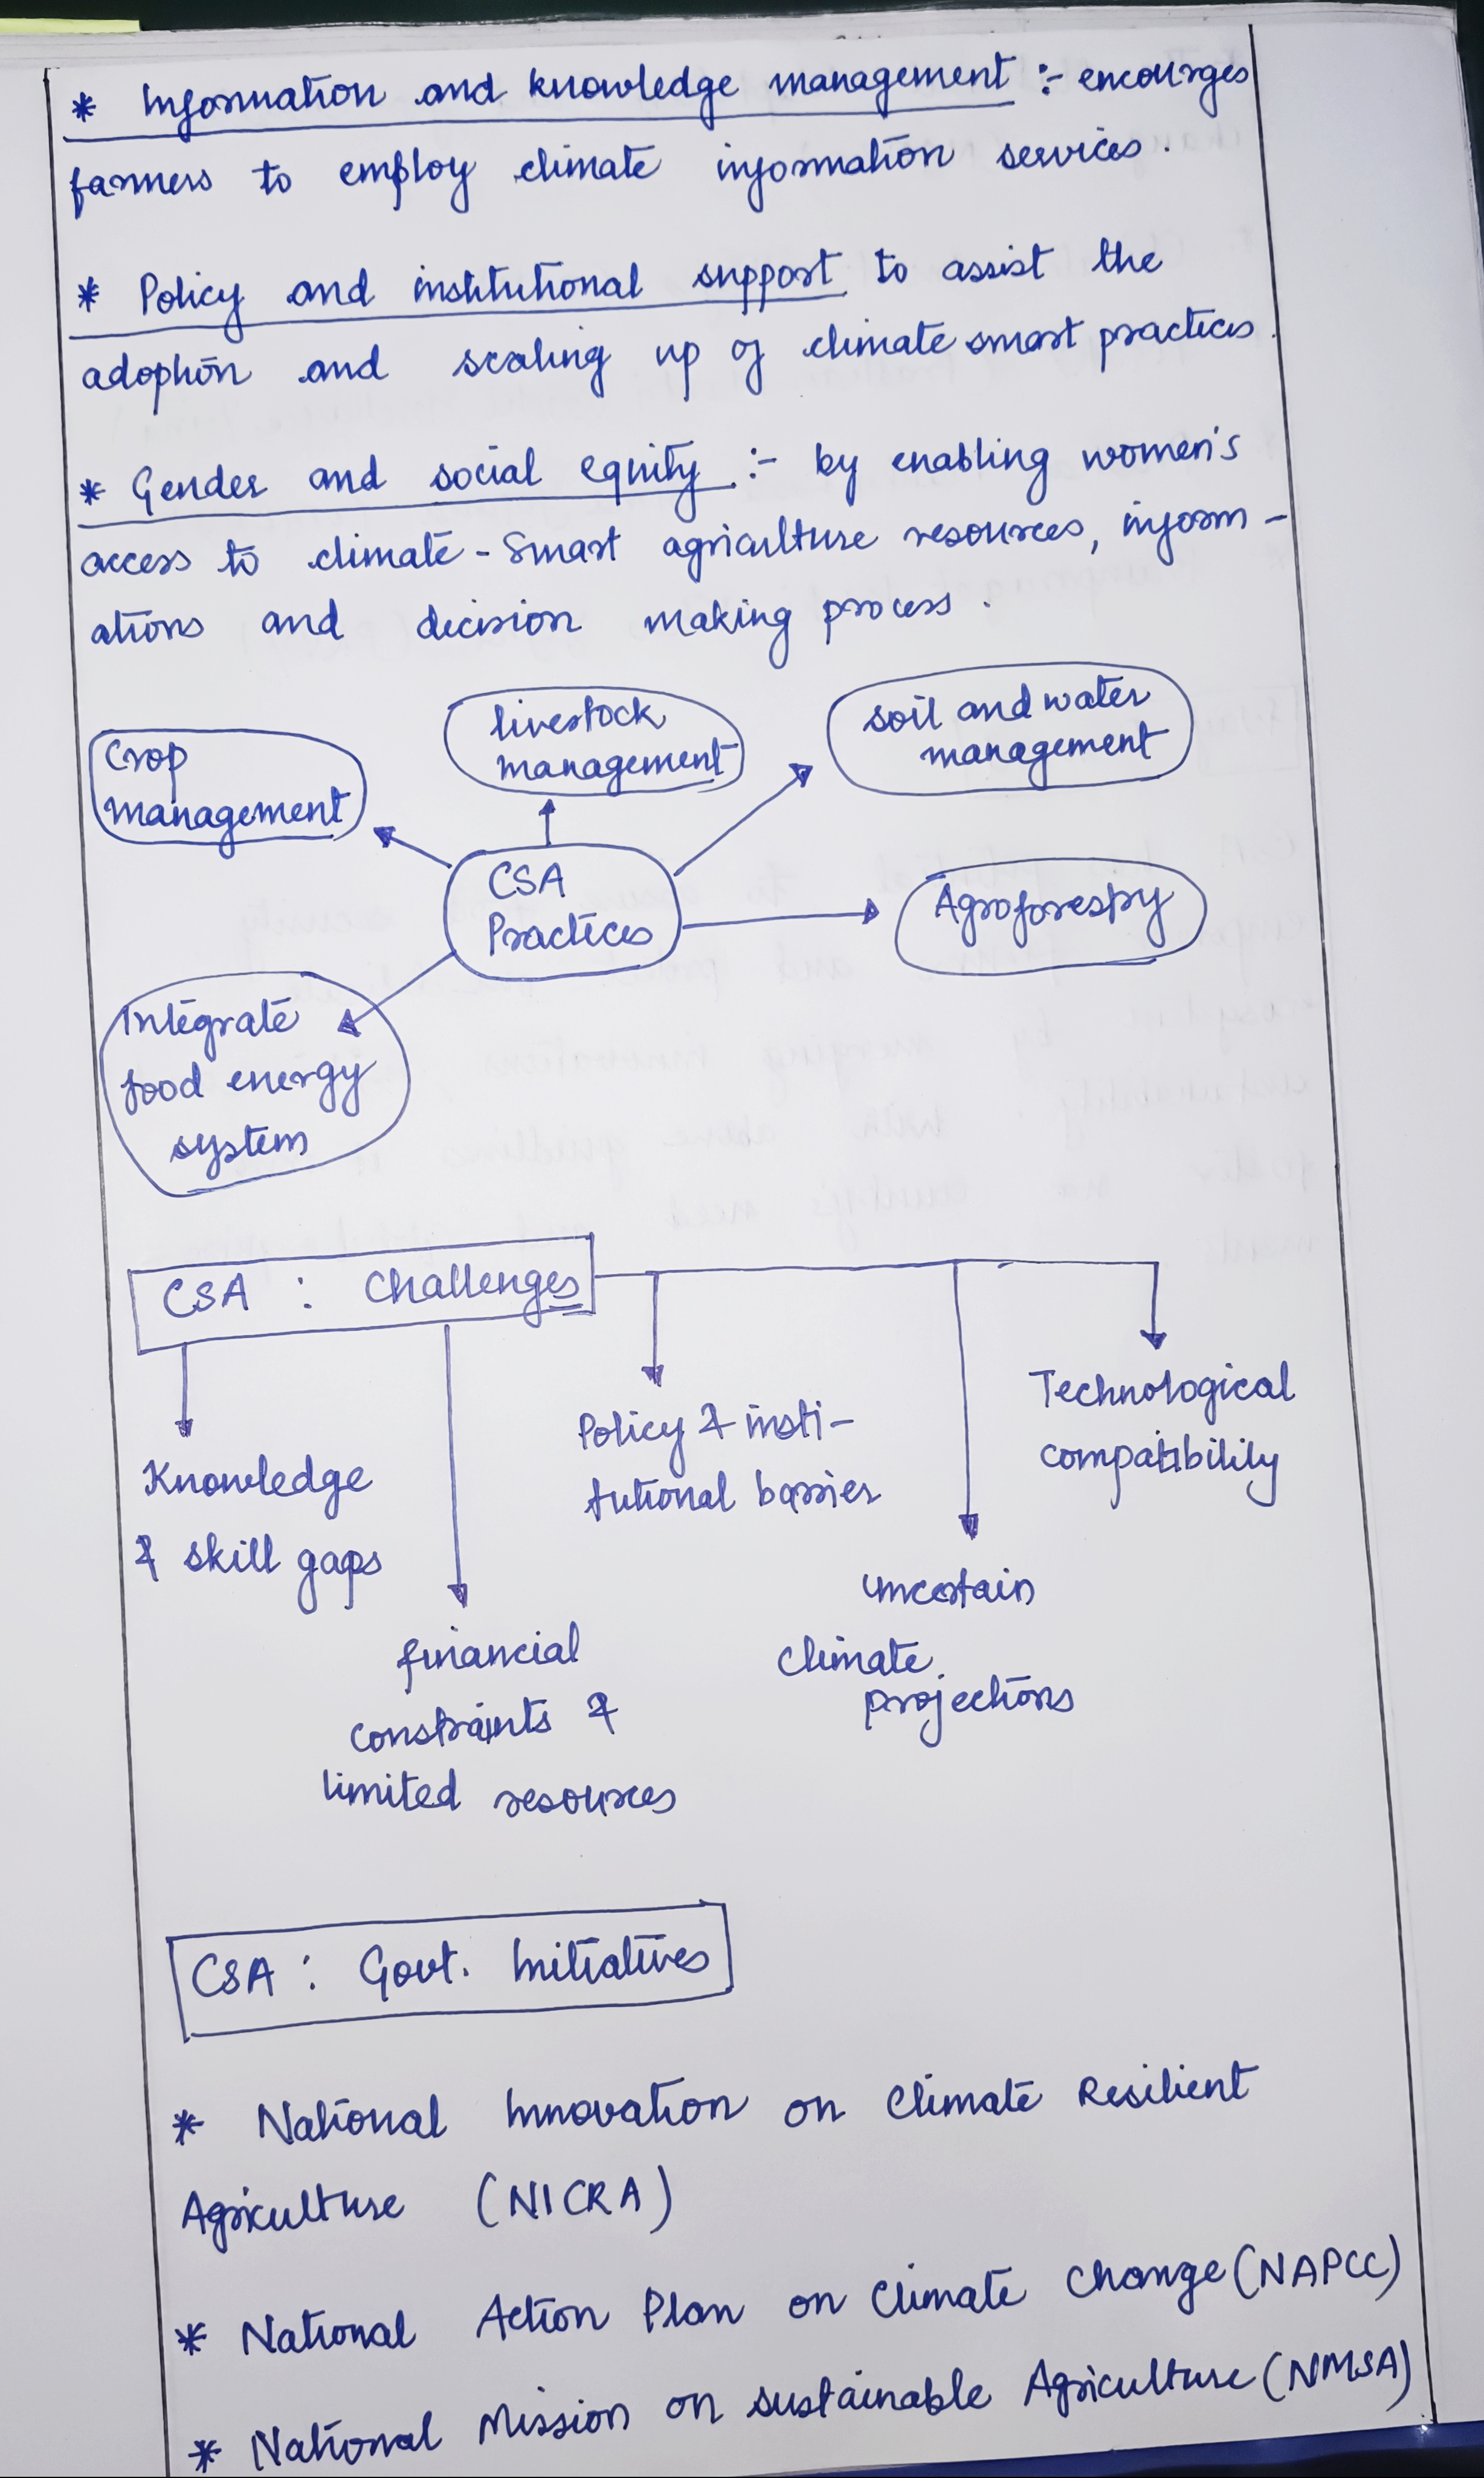 * Information and knowledge management :- encourges
farmers to employ climate information services.
* Policy and institutional support to assist the
adoption and scaling up of climate smart practices.
* Gender and social equity :- by enabling women's
access to climate - Smart agriculture resources, inform -
ations and decision making process.
Crop
management
livestock
management
soil and water
management
CSA
Practices
Agroforestry
Integrate
food energy
system
CSA : Challenges
Knowledge
& skill gaps
financial
constraints &
limited resources
Policy & insti-
tutional barrier
uncertain
climate
projections
Technological
compatibility
CSA : Govt. Initiatives
* National Innovation on Climate Resilient
Agriculture (NICRA)
* National Action Plan on Climate Change (NAPCC)
* National Mission on sustainable Agriculture (NMSA)